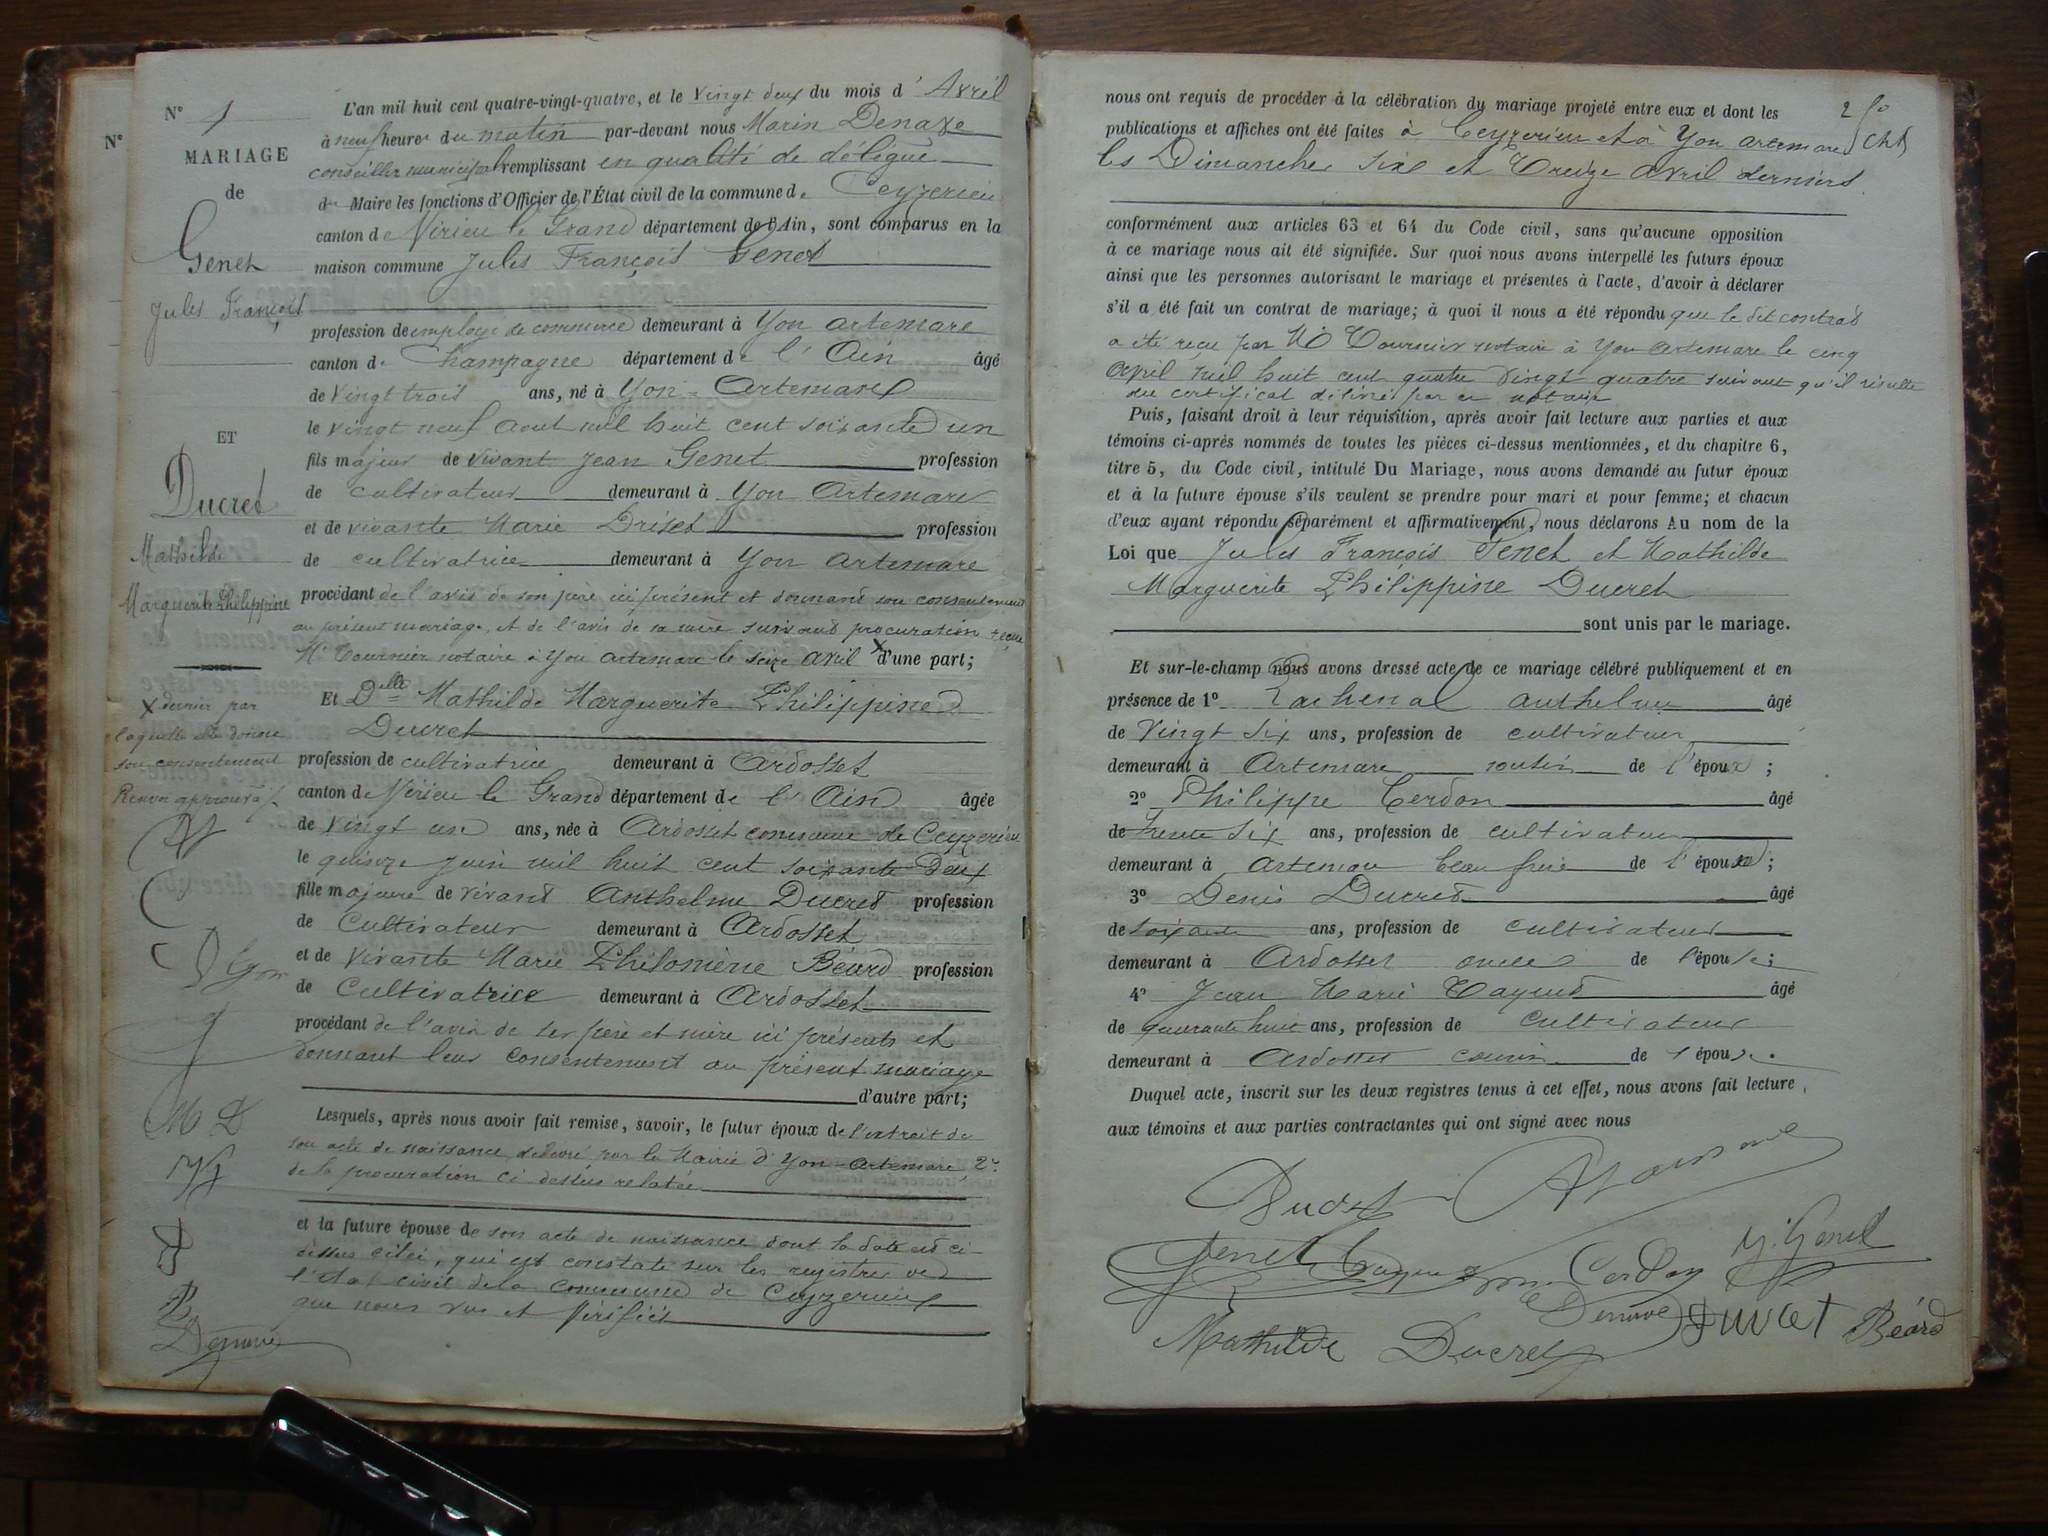 N°
N° 1
MARIAGE
de
Genet
Jules François
ET
Ducret
Mathilde
Marguerite Philippine
X dernier par
laquelle elle donne
son consentement
Renvoi approuvé
M D
L'an mil huit cent quatre-vingt-quatre, et le vingt deux du mois d'Avril
à neuf heures du matin par-devant nous Marin
conseiller municipal remplissant en qualité de délégué
du Maire les fonctions d'Officier de l'État civil de la commune de Ceyzerieu
canton de Virieu le Grand département de l'Ain, sont comparus en la
maison commune Jules François Genet
profession de employé de commerce demeurant à Yon artemare
canton de Champagne département de l'Ain âgé
de vingt trois ans, né à Yon-Artemare
le vingt neuf Aout mil huit cent soixante un
fils majeur de vivant Jean Genet profession
de cultivateur demeurant à Yon Artemare
et de vivante Marie profession
de cultivatrice demeurant à Yon artemare
procédant de l'avis de son père ici présent et donnant son consentement
au présent mariage, et de l'avis de sa mère suivant procuration reçue
Me Tournier notaire à Yon artemare le seize avril X d'une part;
Et Delle Mathilde Marguerite Philippine
Ducret
profession de cultivatrice demeurant à Ardosset
canton de Virieu le Grand département de l'Ain âgée
de vingt un ans, née à Ardosset commune de Ceyzerieu
le quinze juin mil huit cent soixante deux
fille majeure de vivant Anthelme Ducret profession
de Cultivateur demeurant à Ardosset
et de vivante Marie Philomène Béard profession
de Cultivatrice demeurant à Ardosset
procédant de l'avis de ses père et mère ici présents et
donnant leur consentement au présent mariage
d'autre part;
Lesquels, après nous avoir fait remise, savoir, le futur époux de l'extrait de
son acte de naissance délivré par la Mairie d'Yon-Artemare, 2°
de la procuration ci dessus relatée
et la future épouse de son acte de naissance dont la date est ci-
dessus citée, qui est constaté sur les registres de
l'état civil de la commune de Ceyzerieu
que nous vus et vérifiés
2
nous ont requis de procéder à la célébration du mariage projeté entre eux et dont les
publications et affiches ont été faites à Ceyzerieu et à Yon artemare
les Dimanches six et treize avril derniers
conformément aux articles 63 et 64 du Code civil, sans qu'aucune opposition
à ce mariage nous ait été signifiée. Sur quoi nous avons interpellé les futurs époux
ainsi que les personnes autorisant le mariage et présentes à l'acte, d'avoir à déclarer
s'il a été fait un contrat de mariage; à quoi il nous a été répondu que le dit contrat
a été reçu par Me Tournier notaire à Yon artemare le cinq
avril mil huit cent quatre vingt quatre suivant qu'il résulte
du certificat délivré par ce notaire
Puis, faisant droit à leur réquisition, après avoir fait lecture aux parties et aux
témoins ci-après nommés de toutes les pièces ci-dessus mentionnées, et du chapitre 6,
titre 5, du Code civil, intitulé Du Mariage, nous avons demandé au futur époux
et à la future épouse s'ils veulent se prendre pour mari et pour femme; et chacun
d'eux ayant répondu séparément et affirmativement, nous déclarons Au nom de la
Loi que Jules François Genet et Mathilde
Marguerite Philippine Ducret
sont unis par le mariage.
Et sur-le-champ nous avons dressé acte de ce mariage célébré publiquement et en
présence de 1° Lachenal anthelme âgé
de vingt six ans, profession de cultivateur
demeurant à Artemare cousin de l'époux;
2° Philippe Cerdon âgé
de trente six ans, profession de cultivateur
demeurant à artemare beau frère de l'époux;
3° Denis Ducret âgé
de soixante ans, profession de cultivateur
demeurant à Ardosset oncle de l'épouse;
4° Jean Marie âgé
de quarante huit ans, profession de cultivateur
demeurant à Ardosset cousin de l'épouse.
Duquel acte, inscrit sur les deux registres tenus à cet effet, nous avons fait lecture
aux témoins et aux parties contractantes qui ont signé avec nous
Genet
Cerdon
Ducret
Béard
Mathilde Ducret